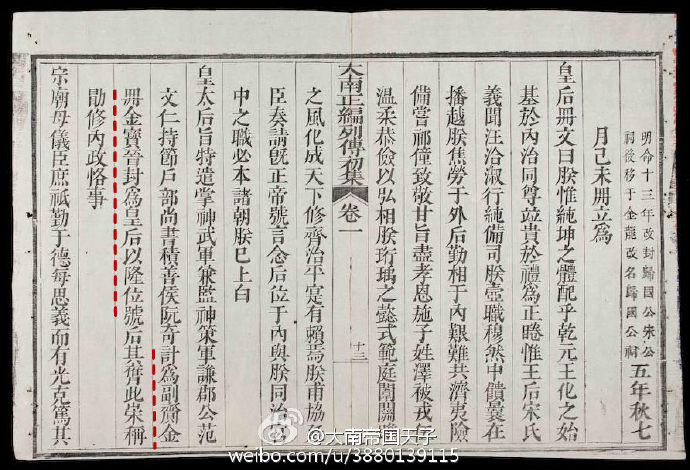 明命十三年改封歸國公宋公
祠後移于金龍改名歸國公祠
五年秋七
月己未開立爲
皇后冊文曰朕惟純坤之體配乎乾元王化之始
基於內治同尊竝貴於禮爲正睠惟王后宋氏
義聞汪洽淑行純備司朕壼職穆然中饋曩在
播越朕焦勞于外后勤相于內艱難共濟夷險
備嘗祁僮致敬甘旨盡孝恩施子姓澤被戎
溫柔恭儉以弘相朕珩瑀之懿式範庭闈關
大南正編列傳初集 卷一 十三
之風化成天下修齊治平寔有賴焉朕甫協
臣奏請旣正帝號言念后位于內與朕同治
中之職必本諸朝朕已上白
皇太后旨特遣掌神武軍兼監神策軍謙郡公范
文仁持節戶部尚書積善侯阮奇計爲副齎金
冊金寶晉封爲皇后以隆位號后其膺此崇稱
勖修內政恪事
宗廟母儀臣庶祗勤于德每思義而有光克篤其
@大南帝国天子
weibo.com/u/3880139115